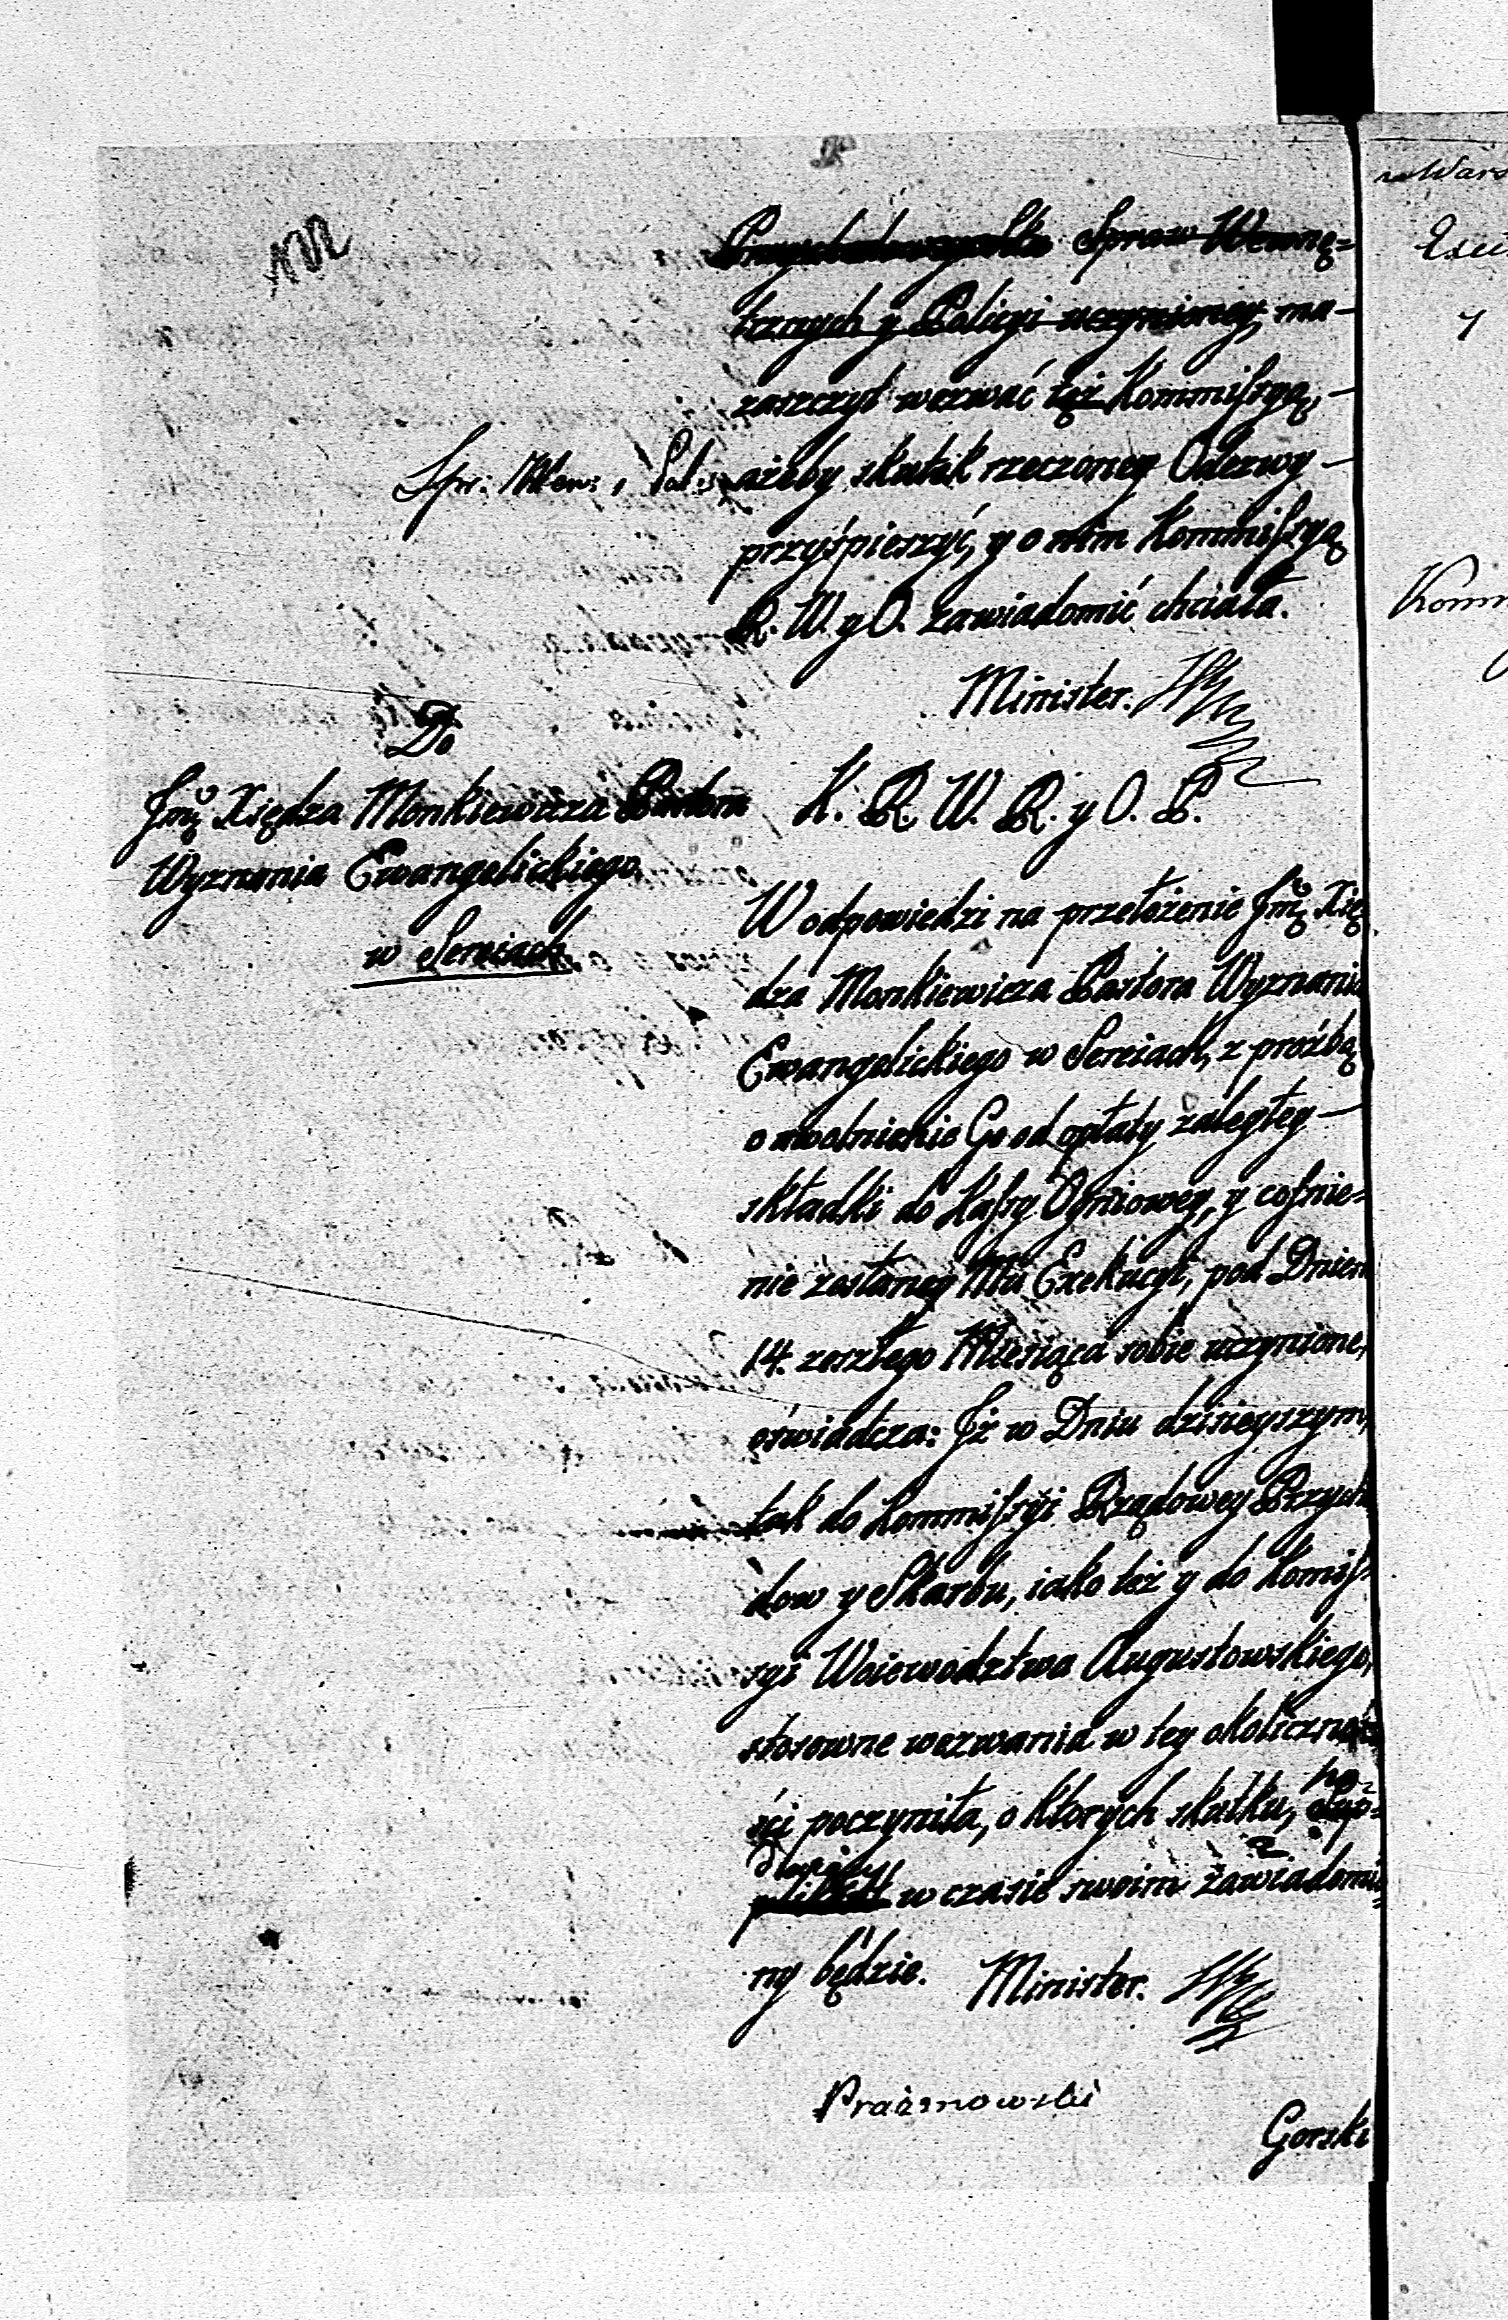 Spraw Wewnę=
trznych y Policyi uczynioney, ma
zaszczyt wezwać też Kommissyą,
Spr: Wew: i Pol:
ażeby skutek rzeczoney Odezwy
przyśpieszyć, y o nim Kommissyą
R. W. y O. zawiadomić chciała.
Minister.
Do
Jmć Xiędza Monkiewicza Pastora
Wyznania Ewangelickiego
w Sereiach
K. R. W. R. y O. P.
W odpowiedzi na przełożenie Jmć Xię
dza Monkiewicza Pastora Wyznania
Ewangelickiego w Sereiach, z proźbą
o uwolnienie Go od opłaty zaległey
składki do Kassy Ogniowey, y cofnie=
nie zesłaney Mu Exekucyi, pod Dniem
14. zeszłego Miesiąca sobie uczynione,
oświadcza: Iż w Dniu dzisieyszym,
tak do Kommissyi Rządowey Przycho
dow y Skarbu, iako też y do Komis=
syi Woiewodztwa Augustowskiego,
stosowne wezwania w tey okoliczno
ści poczyniła, o ktorych skutku,
w czasie swoim zawiadomio=
ny będzie. Minister.
Prażmowski
Gorski
w Wars
Komm